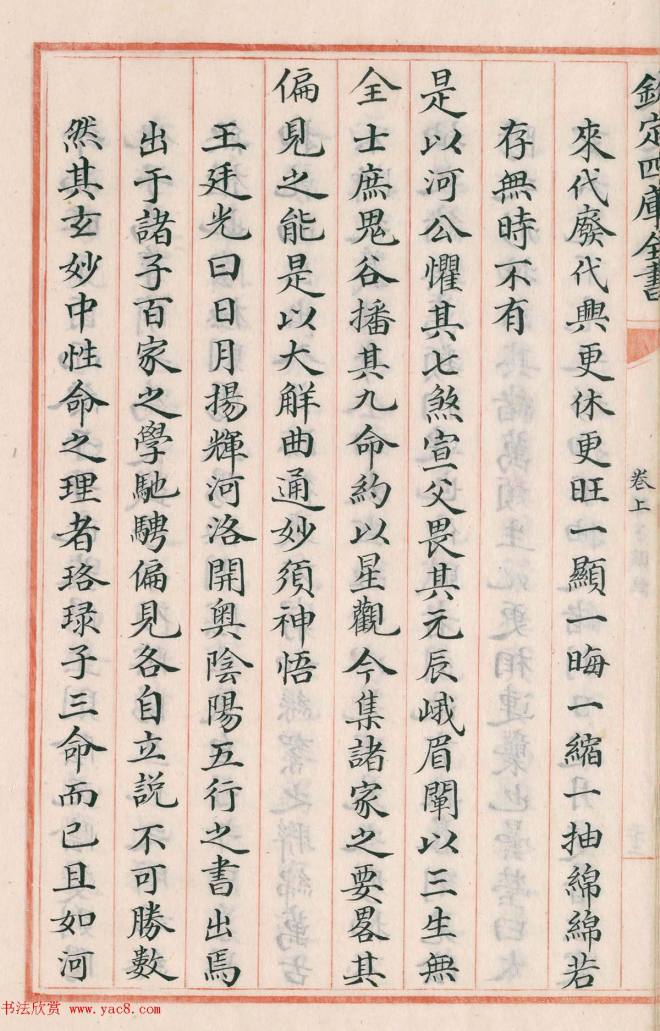 欽定四庫全書
卷上
來代廢代興更休更旺一顯一晦一縮一抽綿綿若
存無時不有
是以河公懼其七煞宣父畏其元辰峨眉闡以三生無
全士庶鬼谷播其九命約以星觀今集諸家之要畧其
偏見之能是以大解曲通妙須神悟
王廷光曰日月揚輝河洛開奧陰陽五行之書出焉
出于諸子百家之學馳騁偏見各自立説不可勝數
然其玄妙中性命之理者珞琭子三命而已且如河
书法欣赏 www.yac8.com